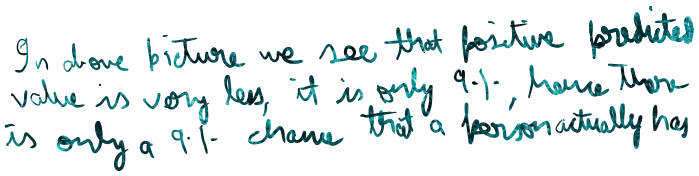 In above picture we see that positive predicted
value is very less, it is only 9%, hence there
is only a 9% chance that a person actually has